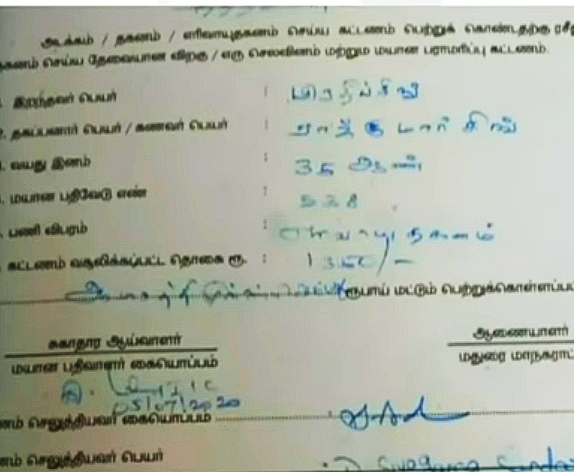 அடக்கம் / தகனம் / எரிவாயுதகனம் செய்ய கட்டணம் பெற்றுக் கொண்டதற்கு ரசீது
தகனம் செய்ய தேவையான விறகு / எரு செலவினம் மற்றும் மயான பராமரிப்பு கட்டணம்.
இறந்தவர் பெயர் :
தகப்பனார் பெயர் / கணவர் பெயர் : ராஜ் குமார் சிங்
வயது இனம் : 35 ஆண்
மயான பதிவேடு எண் : 538
பணி விபரம் : எரிவாயு தகனம்
கட்டணம் வசூலிக்கப்பட்ட தொகை ரூ. : 1350/-
ரூபாய் மட்டும் பெற்றுக்கொள்ளப்பட
சுகாதார ஆய்வாளர் ஆணையாளர்
மயான பதிவாளர் கையொப்பம் மதுரை மாநகராட்
05/07/2020
ணம் செலுத்தியவர் கையொப்பம்
ணம் செலுத்தியவர் பெயர் :